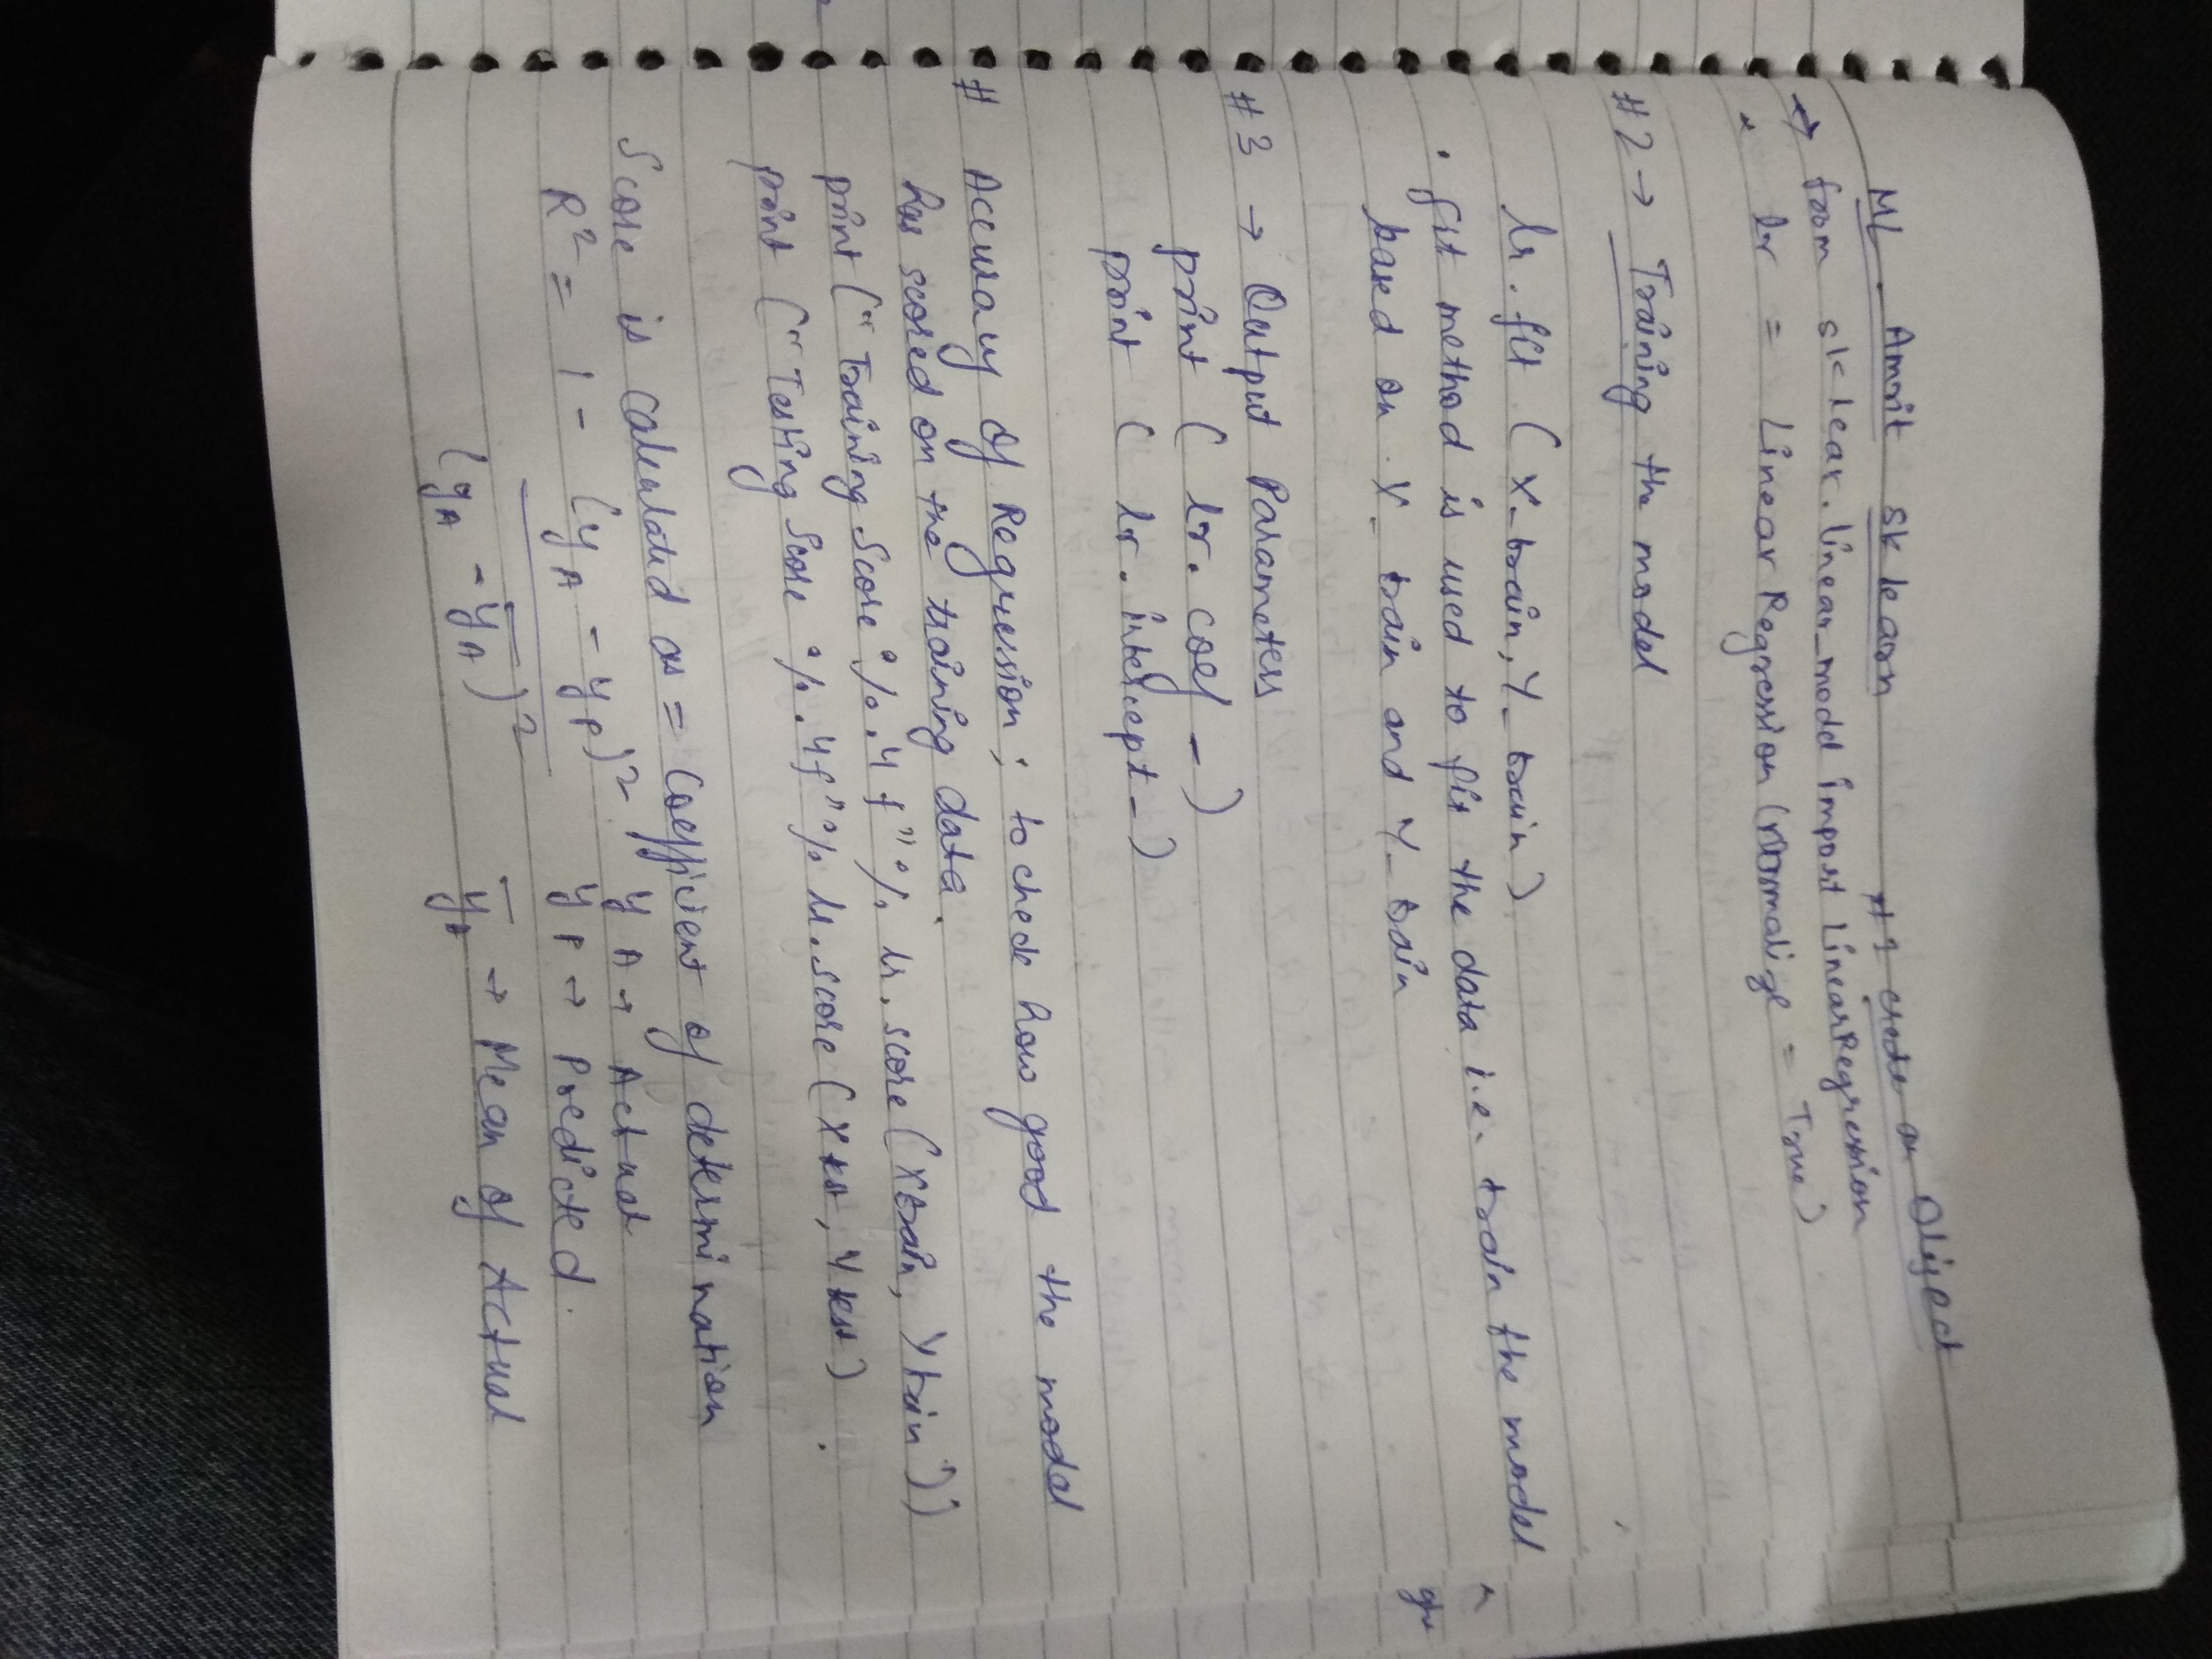 ML. Amrit sklearn #1 create an Object
→ from sklear.linear_model import LinearRegression
lr = Linear Regression (normalize = True)
#2 → Training the model
lr.fit (X_train, Y_train)
. fit method is used to fit the data i.e. train the model
based on X_train and Y_train
#3 → Output Parameters
print ( lr.coef_)
print ( lr.intercept_)
# Accuracy of Regression; to check how good the model
has scored on the training data.
print ("Training Score %.4f" % lr.score (Xtrain, Ytrain))
print ("Testing Score %.4f" % lr.score (Xtest, Ytest)
Score is calculated as = Coefficient of determination
R² = 1 - (yA - yP)² yA → Actual
yP → Predicted.
(yA - ȳA)² ȳA → Mean of Actual